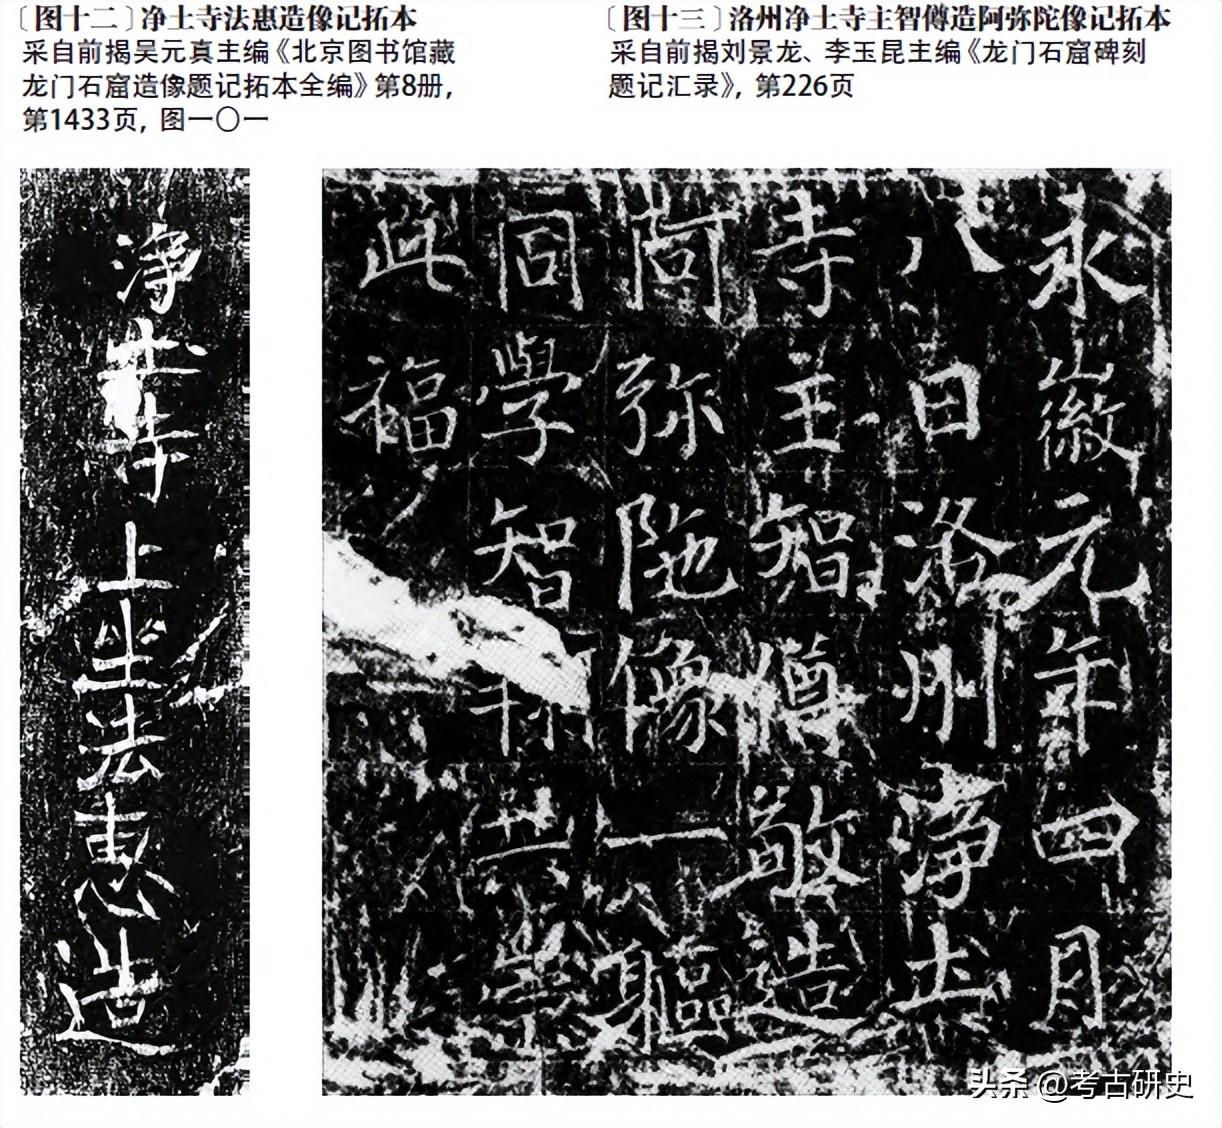 〔图十二〕净土寺法惠造像记拓本
采自前揭吴元真主编《北京图书馆藏
龙门石窟造像题记拓本全编》第8册，
第1433页，图一〇一
〔图十三〕洛州净土寺主智僔造阿弥陀像记拓本
采自前揭刘景龙、李玉昆主编《龙门石窟碑刻
题记汇录》，第226页
淨土寺上坐法惠造
永徽元年四月
八日洛州淨土
寺主智僔敬造
阿弥陁像一軀
同學智
此福
头条 @考古研史